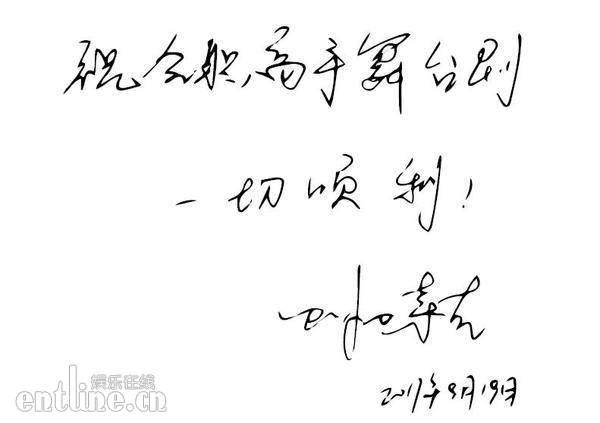 祝全职高手舞台剧
一切顺利！
2017年9月19日
娱乐在线
entline.cn